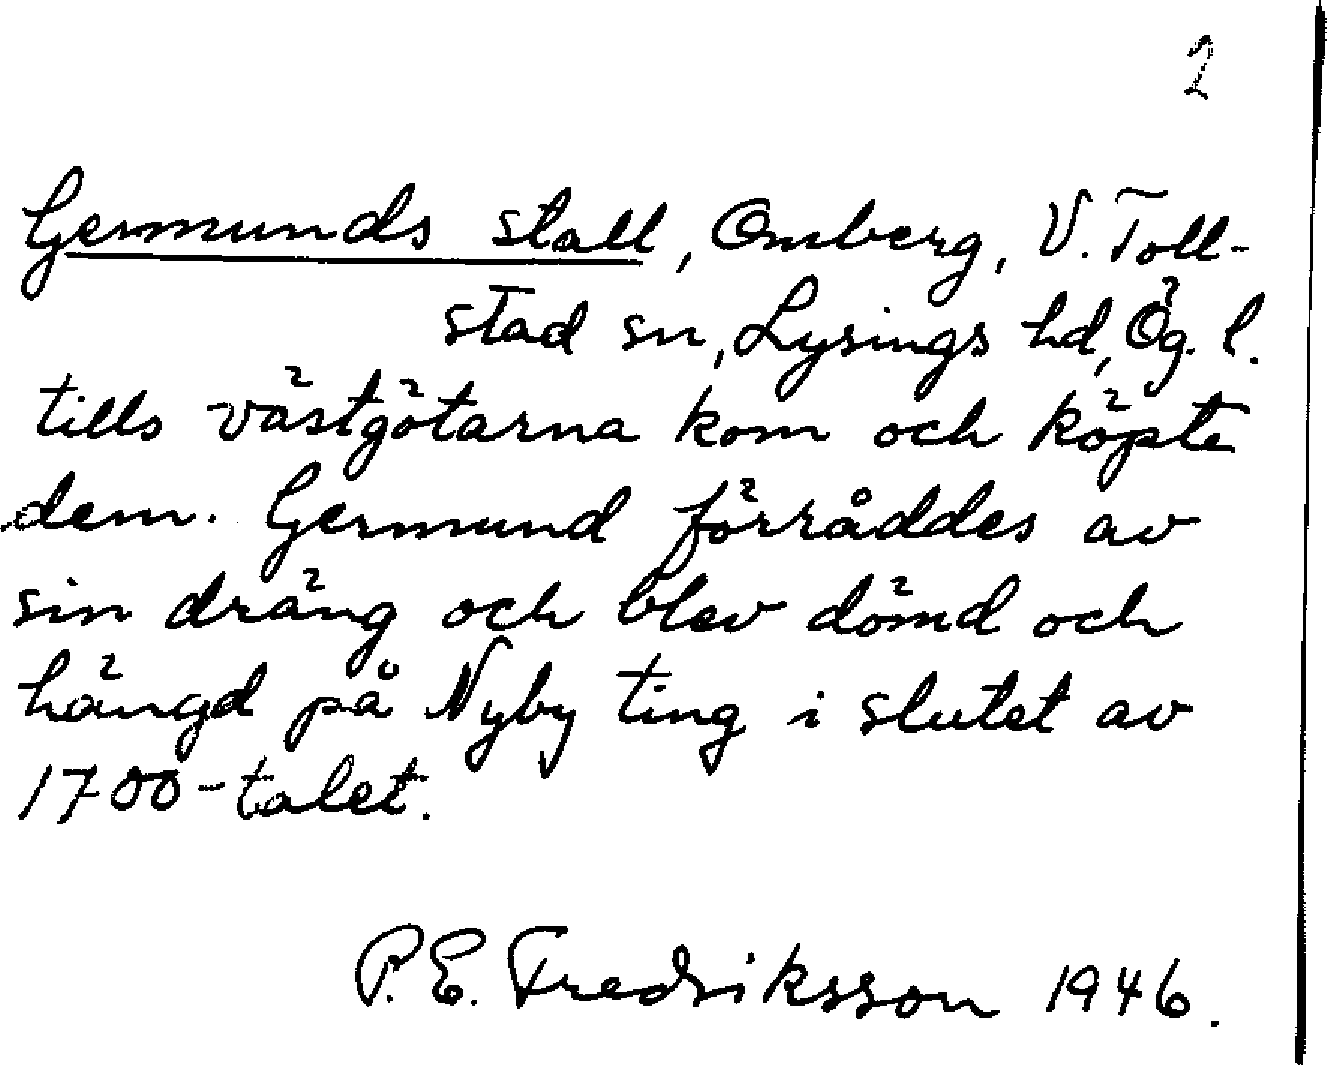 2
Germunds stall, Omberg, V. Toll-
stad sn, Lysings hd, Ög. l.
tills västgötarna kom och köpte
dem. Germund förråddes av
sin dräng och blev dömd och
hängd på Nyby ting i slutet av
1700-talet.
P. E. Fredriksson 1946.